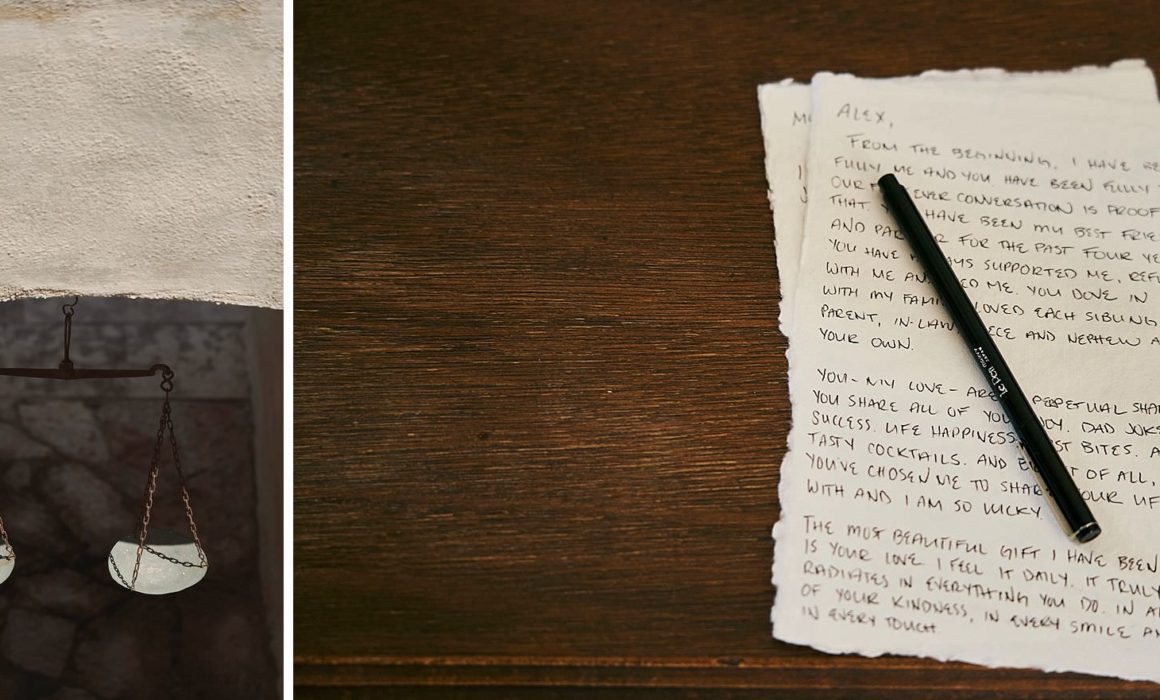 ALEX,
FROM THE BEGINNING, I HAVE
FULLY ME AND YOU HAVE BEEN FULLY
OUR EVER CONVERSATION IS PROOF
THAT HAVE BEEN MY BEST
AND FOR THE PAST FOUR
YOU HAVE SUPPORTED ME,
WITH ME AND ME. YOU DOVE IN
WITH MY LOVED EACH SIBLING,
PARENT, IN-LAW, AND NEPHEW
YOUR OWN.
YOU - MY LOVE - ARE PERPETUAL
YOU SHARE ALL OF JOY. DAD
SUCCESS. LIFE HAPPINESS. BITES.
TASTY COCKTAILS. AND OF ALL,
YOU'VE CHOSEN ME TO YOUR
WITH AND I AM SO LUCKY.
THE MOST BEAUTIFUL GIFT I HAVE BEEN
IS YOUR LOVE. I FEEL IT DAILY. IT TRULY
RADIATES IN EVERYTHING YOU DO. IN
OF YOUR KINDNESS, IN EVERY SMILE
IN EVERY TOUCH.
Le Pen